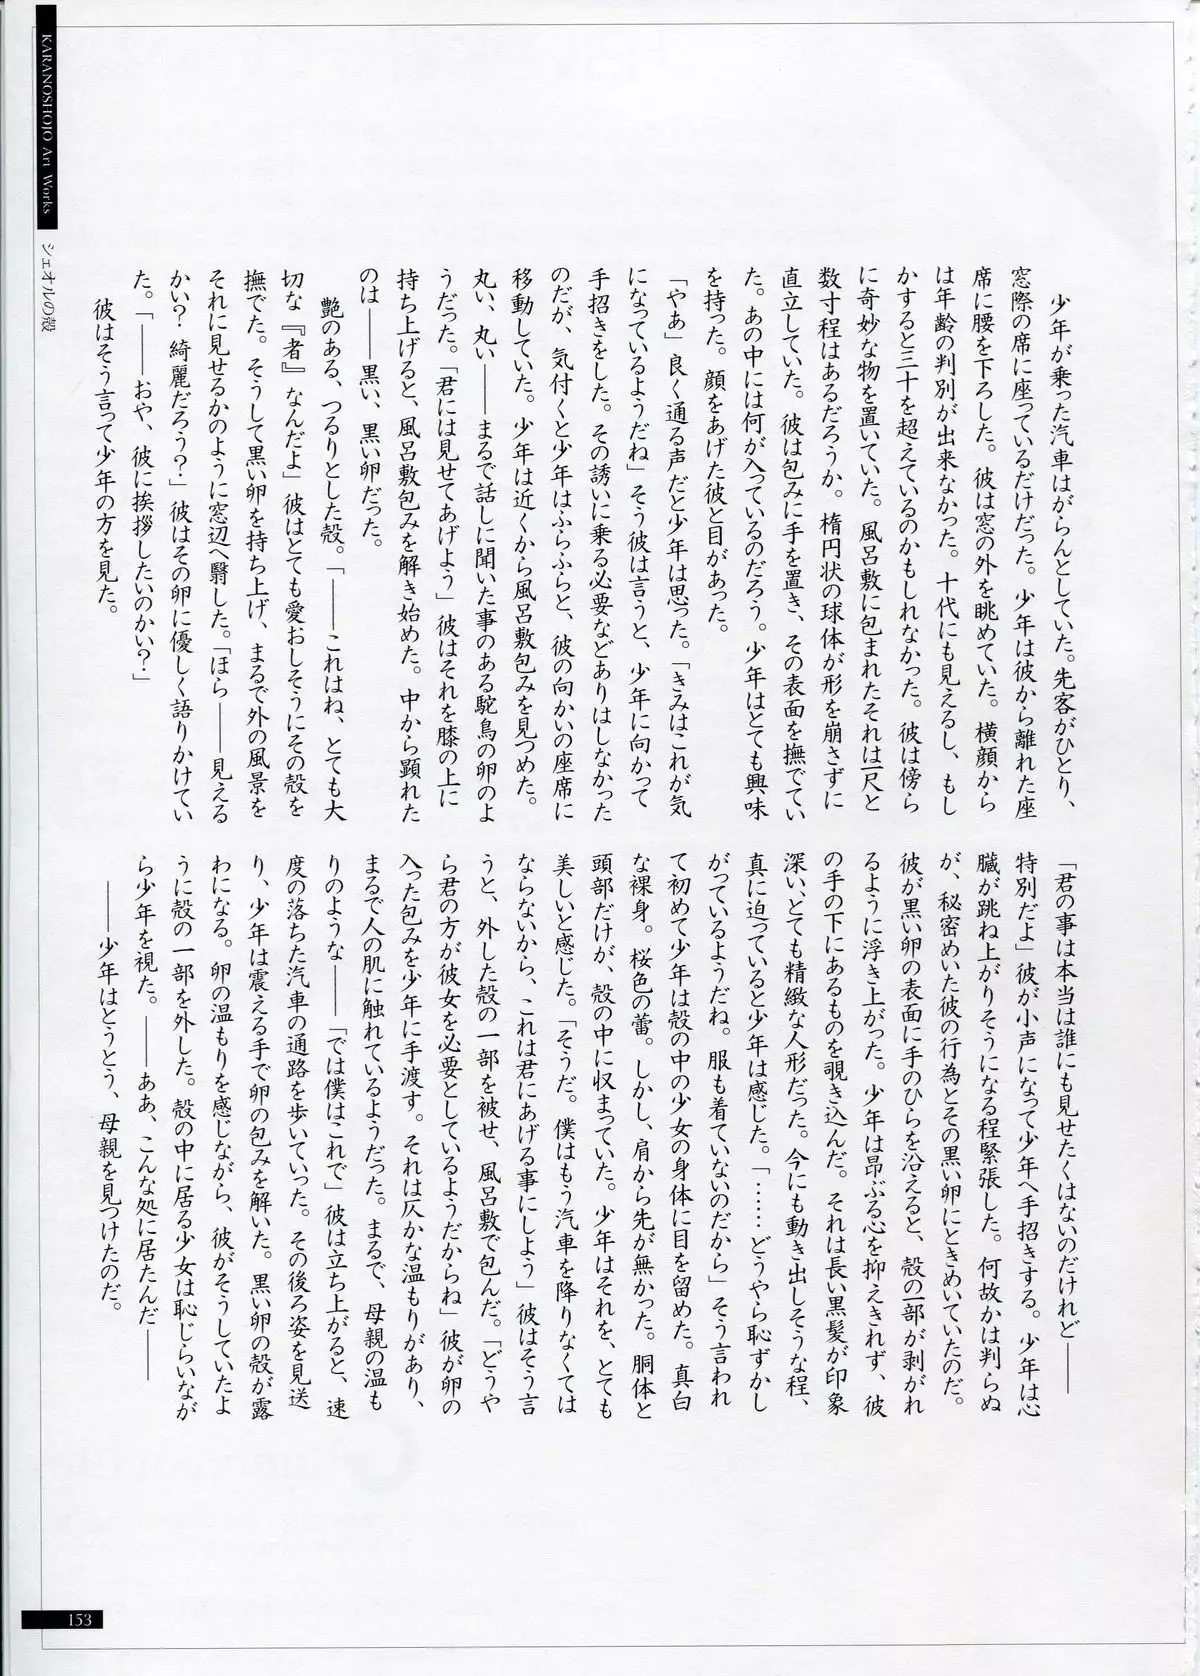 KARANOSHOJO Art Works
シェオルの殻
少年が乗った汽車はがらんとしていた。先客がひとり、
窓際の席に座っているだけだった。少年は彼から離れた座
席に腰を下ろした。彼は窓の外を眺めていた。横顔から
は年齢の判別が出来なかった。十代にも見えるし、もし
かすると三十を超えているのかもしれなかった。彼は傍ら
に奇妙な物を置いていた。風呂敷に包まれたそれは一尺と
数寸程はあるだろうか。楕円状の球体が形を崩さずに
直立していた。彼は包みに手を置き、その表面を撫でてい
た。あの中には何が入っているのだろう。少年はとても興味
を持った。顔をあげた彼と目があった。
「やあ」良く通る声だと少年は思った。「きみはこれが気
になっているようだね」そう彼は言うと、少年に向かって
手招きをした。その誘いに乗る必要などありはしなかった
のだが、気付くと少年はふらふらと、彼の向かいの座席に
移動していた。少年は近くから風呂敷包みを見つめた。
丸い、丸い――まるで話しに聞いた事のある駝鳥の卵のよ
うだった。「君には見せてあげよう」彼はそれを膝の上に
持ち上げると、風呂敷包みを解き始めた。中から顕れた
のは――黒い、黒い卵だった。
艶のある、つるりとした殻。「――これはね、とても大
切な『者』なんだよ」彼はとても愛おしそうにその殻を
撫でた。そうして黒い卵を持ち上げ、まるで外の風景を
それに見せるかのように窓辺へ翳した。「ほら――見える
かい？ 綺麗だろう？」彼はその卵に優しく語りかけてい
た。「――おや、彼に挨拶したいのかい？」
彼はそう言って少年の方を見た。
「君の事は本当は誰にも見せたくはないのだけれど――
特別だよ」彼が小声になって少年へ手招きする。少年は心
臓が跳ね上がりそうになる程緊張した。何故かは判らぬ
が、秘密めいた彼の行為とその黒い卵にときめいていたのだ。
彼が黒い卵の表面に手のひらを沿えると、殻の一部が剥がれ
るように浮き上がった。少年は昂ぶる心を抑えきれず、彼
の手の下にあるものを覗き込んだ。それは長い黒髪が印象
深い、とても精緻な人形だった。今にも動き出しそうな程、
真に迫っていると少年は感じた。「……どうやら恥ずかし
がっているようだね。服も着ていないのだから」そう言われ
て初めて少年は殻の中の少女の身体に目を留めた。真白
な裸身。桜色の蕾。しかし、肩から先が無かった。胴体と
頭部だけが、殻の中に収まっていた。少年はそれを、とても
美しいと感じた。「そうだ。僕はもう汽車を降りなくては
ならないから、これは君にあげる事にしよう」彼はそう言
うと、外した殻の一部を被せ、風呂敷で包んだ。「どうや
ら君の方が彼女を必要としているようだからね」彼が卵の
入った包みを少年に手渡す。それは仄かな温もりがあり、
まるで人の肌に触れているようだった。まるで、母親の温も
りのような――「では僕はこれで」彼は立ち上がると、速
度の落ちた汽車の通路を歩いていった。その後ろ姿を見送
り、少年は震える手で卵の包みを解いた。黒い卵の殻が露
わになる。卵の温もりを感じながら、彼がそうしていたよ
うに殻の一部を外した。殻の中に居る少女は恥じらいなが
ら少年を視た。――ああ、こんな処に居たんだ――
――少年はとうとう、母親を見つけたのだ。
153